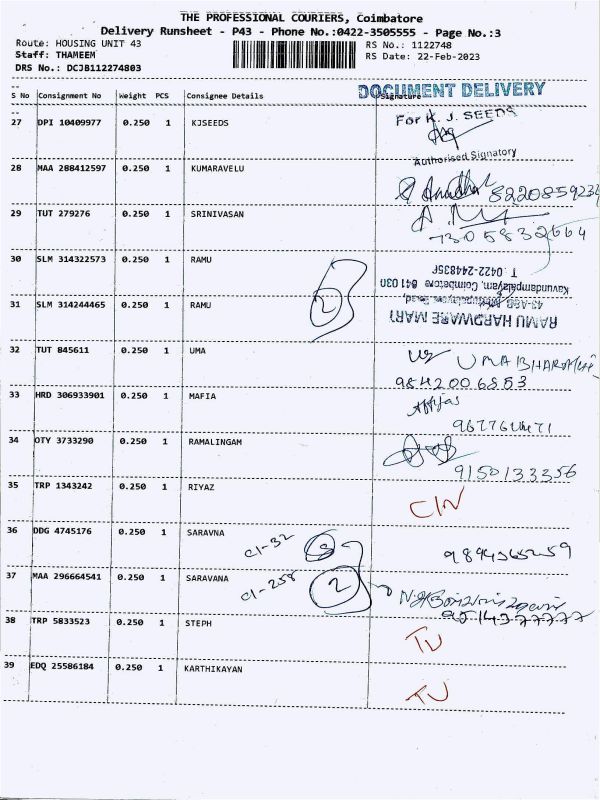 THE PROFESSIONAL COURIERS, Coimbatore
Delivery Runsheet - P43 - Phone No.:0422-3505555 - Page No.:3
Route: HOUSING UNIT 43 RS No.: 1122748
Staff: THAMEEM RS Date: 22-Feb-2023
DRS No.: DCJB112274803
DOCUMENT DELIVERY
S No Consignment No Weight PCS Consignee Details Signature
27 DPI 10409977 0.250 1 KJSEEDS For K. J. SEEDS
Authorised Signatory
28 MAA 288412597 0.250 1 KUMARAVELU
29 TUT 279276 0.250 1 SRINIVASAN
7305832664
30 SLM 314322573 0.250 1 RAMU
T : 0422-244835F
Kavundampalayam, Coimbatore 641 030
31 SLM 314244465 0.250 1 RAMU 2
RAMU HARDWARE MART
32 TUT 845611 0.250 1 UMA
9842006853
33 HRD 306933901 0.250 1 MAFIA
34 OTY 3733290 0.250 1 RAMALINGAM
9150133356
35 TRP 1343242 0.250 1 RIYAZ
36 DDG 4745176 0.250 1 SARAVNA
37 MAA 296664541 0.250 1 SARAVANA 2
38 TRP 5833523 0.250 1 STEPH
39 EDQ 25586184 0.250 1 KARTHIKAYAN